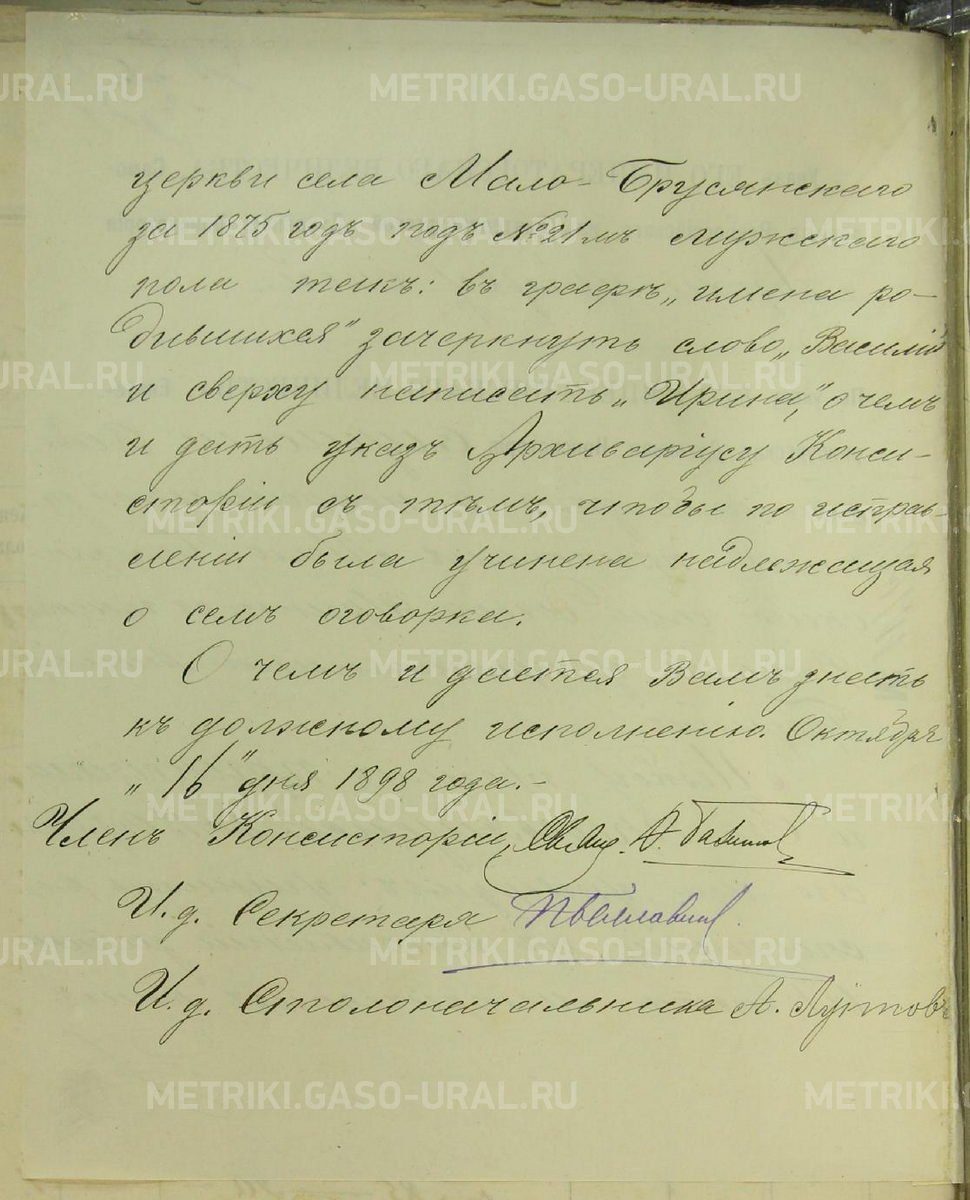 церкви села Мало-Брусянскаго
за 1875 годъ подъ № 21 мъ мужскаго
пола такъ: въ графѣ „имена ро-
дившихся" зачеркнуть слово „Василій"
и сверху написать „Ирина", о чемъ
и дать указъ Архиваріусу Конси-
сторіи съ тѣмъ, чтобы по исправ-
леніи была учинена надлежащая
о семъ оговорка.
О чемъ и дается Вамъ знать
къ должному исполненію. Октября
„16" дня 1898 года.-
Членъ Консисторіи, Свящ.
И. д. Секретаря
И. д. Столоначальника А. Лутовъ
METRIKI.GASO-URAL.RU